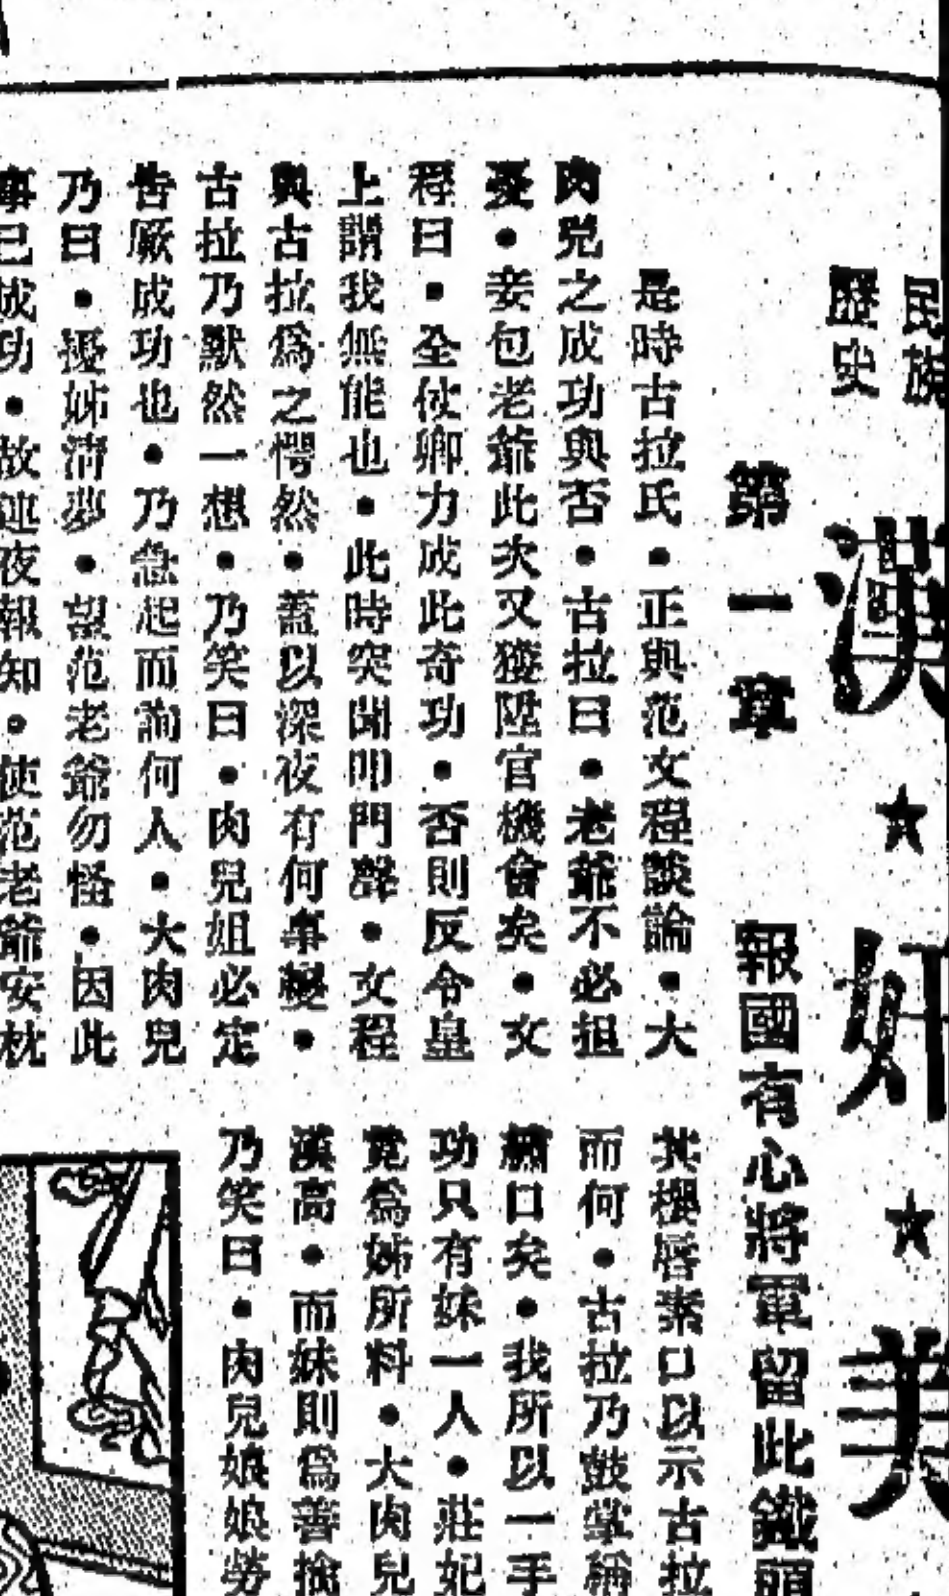 民族
歷史
漢★奸★美
第一章 報國有心將軍留此鐵頭
是時古拉氏●正與范文程談論●大
肉兒之成功與否●古拉曰●老爺不必担
憂●妾包老爺此次又獲陞官機會矣●文
程曰●全仗卿力成此奇功●否則反令皇
上謂我無能也●此時突聞叩門聲●文程
與古拉為之愕然●蓋以深夜有何事變●
古拉乃默然一想●乃笑曰●肉兒姐必定
告厥成功也●乃急起而詢何人●大肉兒
乃曰●擾姊清夢●望范老爺勿怪●因此
事已成功●故連夜報知●使范老爺安枕
其櫻唇素口以示古拉
而何●古拉乃鼓掌稱
口矣●我所以一手
功只有妹一人●莊妃
竟為姊所料●大肉兒
漢高●而妹則為善擒
乃笑曰●肉兒娘娘勞